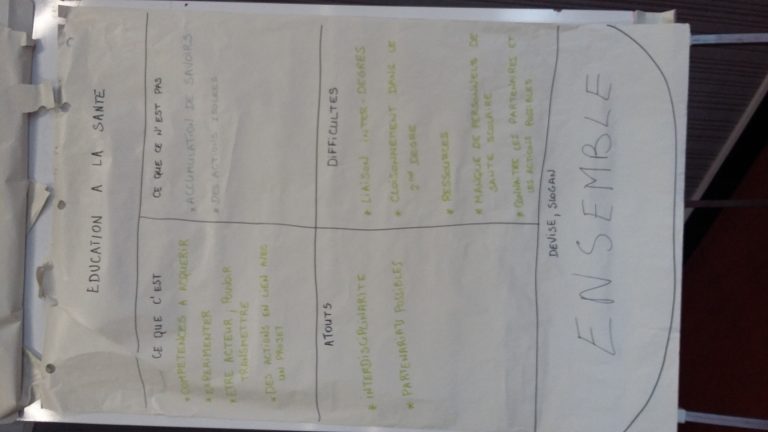 EDUCATION A LA SANTE
CE QUE C'EST
* COMPETENCES A ACQUERIR
* EXPERIMENTER
* ETRE ACTEUR, POUVOIR
TRANSMETTRE
* DES ACTIONS EN LIEN AVEC
UN PROJET
CE QUE CE N'EST PAS
* ACCUMULATION DE SAVOIRS
* DES ACTIONS ISOLEES
ATOUTS
* INTERDISCIPLINARITE
* PARTENARIATS POSSIBLES
DIFFICULTES
* LIAISON INTER-DEGRES
* CLOISONNEMENT DANS LE
2nd DEGRE
* RESSOURCES
* MANQUE DE PERSONNELS DE
SANTE SCOLAIRE
* CONNAITRE LES PARTENAIRES ET
LES ACTIONS POSSIBLES
DEVISE, SLOGAN
ENSEMBLE